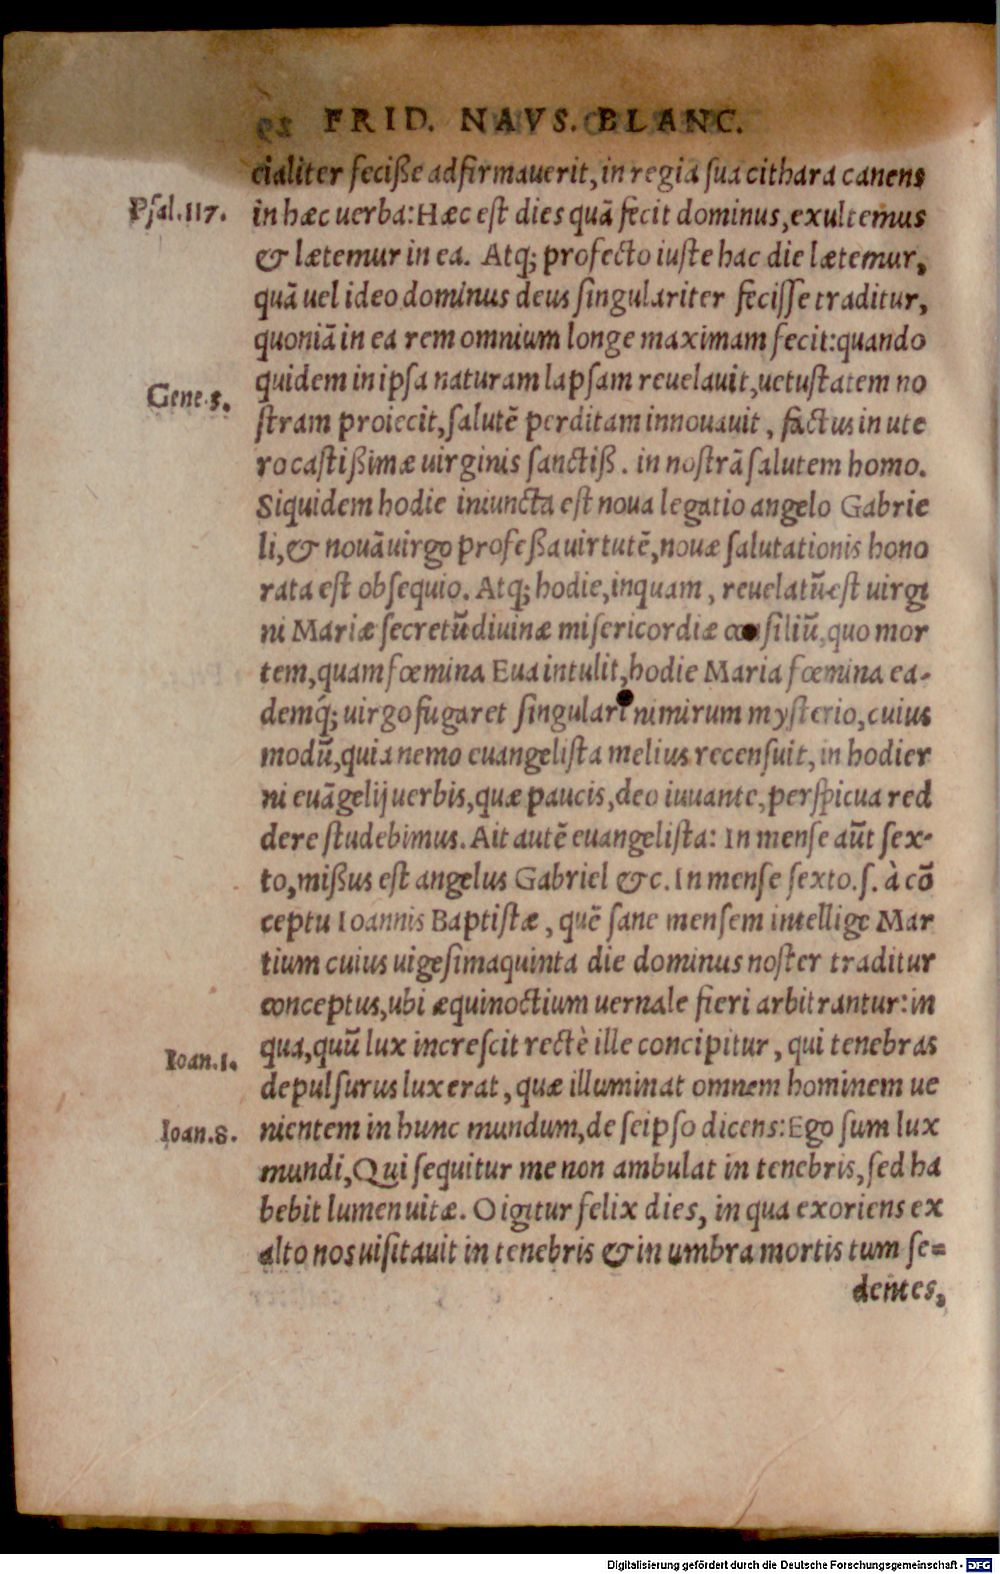 FRID. NAVS. BLANC.
cialiter feciße adfirmauerit, in regia sua cithara canens
Psal.117.
in hæc uerba: Hæc est dies quã fecit dominus, exultemus
& lætemur in ea. Atq; profecto iuste hac die lætemur,
quã uel ideo dominus deus singulariter fecisse traditur,
quoniã in ea rem omnium longe maximam fecit: quando
quidem in ipsa naturam lapsam reuelauit, uetustatem no
Gene.5.
stram proiecit, salutẽ perditam innouauit, factus in ute
ro castißimæ uirginis sanctiß. in nostrã salutem homo.
Siquidem hodie iniuncta est noua legatio angelo Gabrie
li, & nouã uirgo profeßa uirtutẽ, nouæ salutationis hono
rata est obsequio. Atq; hodie, inquam, reuelatũ est uirgi
ni Mariæ secretũ diuinæ misericordiæ consiliũ, quo mor
tem, quam fœmina Eua intulit, hodie Maria fœmina ea-
demq́; uirgo fugaret singulari nimirum mysterio, cuius
modũ, quia nemo euangelista melius recensuit, in hodier
ni euãgelij uerbis, quæ paucis, deo iuuante, perspicua red
dere studebimus. Ait autẽ euangelista: In mense aũt sex-
to, mißus est angelus Gabriel &c. In mense sexto. s. à cõ
ceptu Ioannis Baptistæ, quẽ sane mensem intellige Mar
tium cuius uigesimaquinta die dominus noster traditur
conceptus, ubi æquinoctium uernale fieri arbitrantur: in
Ioan.1.
qua, quũ lux increscit rectè ille concipitur, qui tenebras
depulsurus lux erat, quæ illuminat omnem hominem ue
Ioan.8.
nientem in hunc mundum, de seipso dicens: Ego sum lux
mundi, Qui sequitur me non ambulat in tenebris, sed ha
bebit lumen uitæ. O igitur felix dies, in qua exoriens ex
alto nos uisitauit in tenebris & in umbra mortis tum se=
dentes,
Digitalisierung gefördert durch die Deutsche Forschungsgemeinschaft - DFG